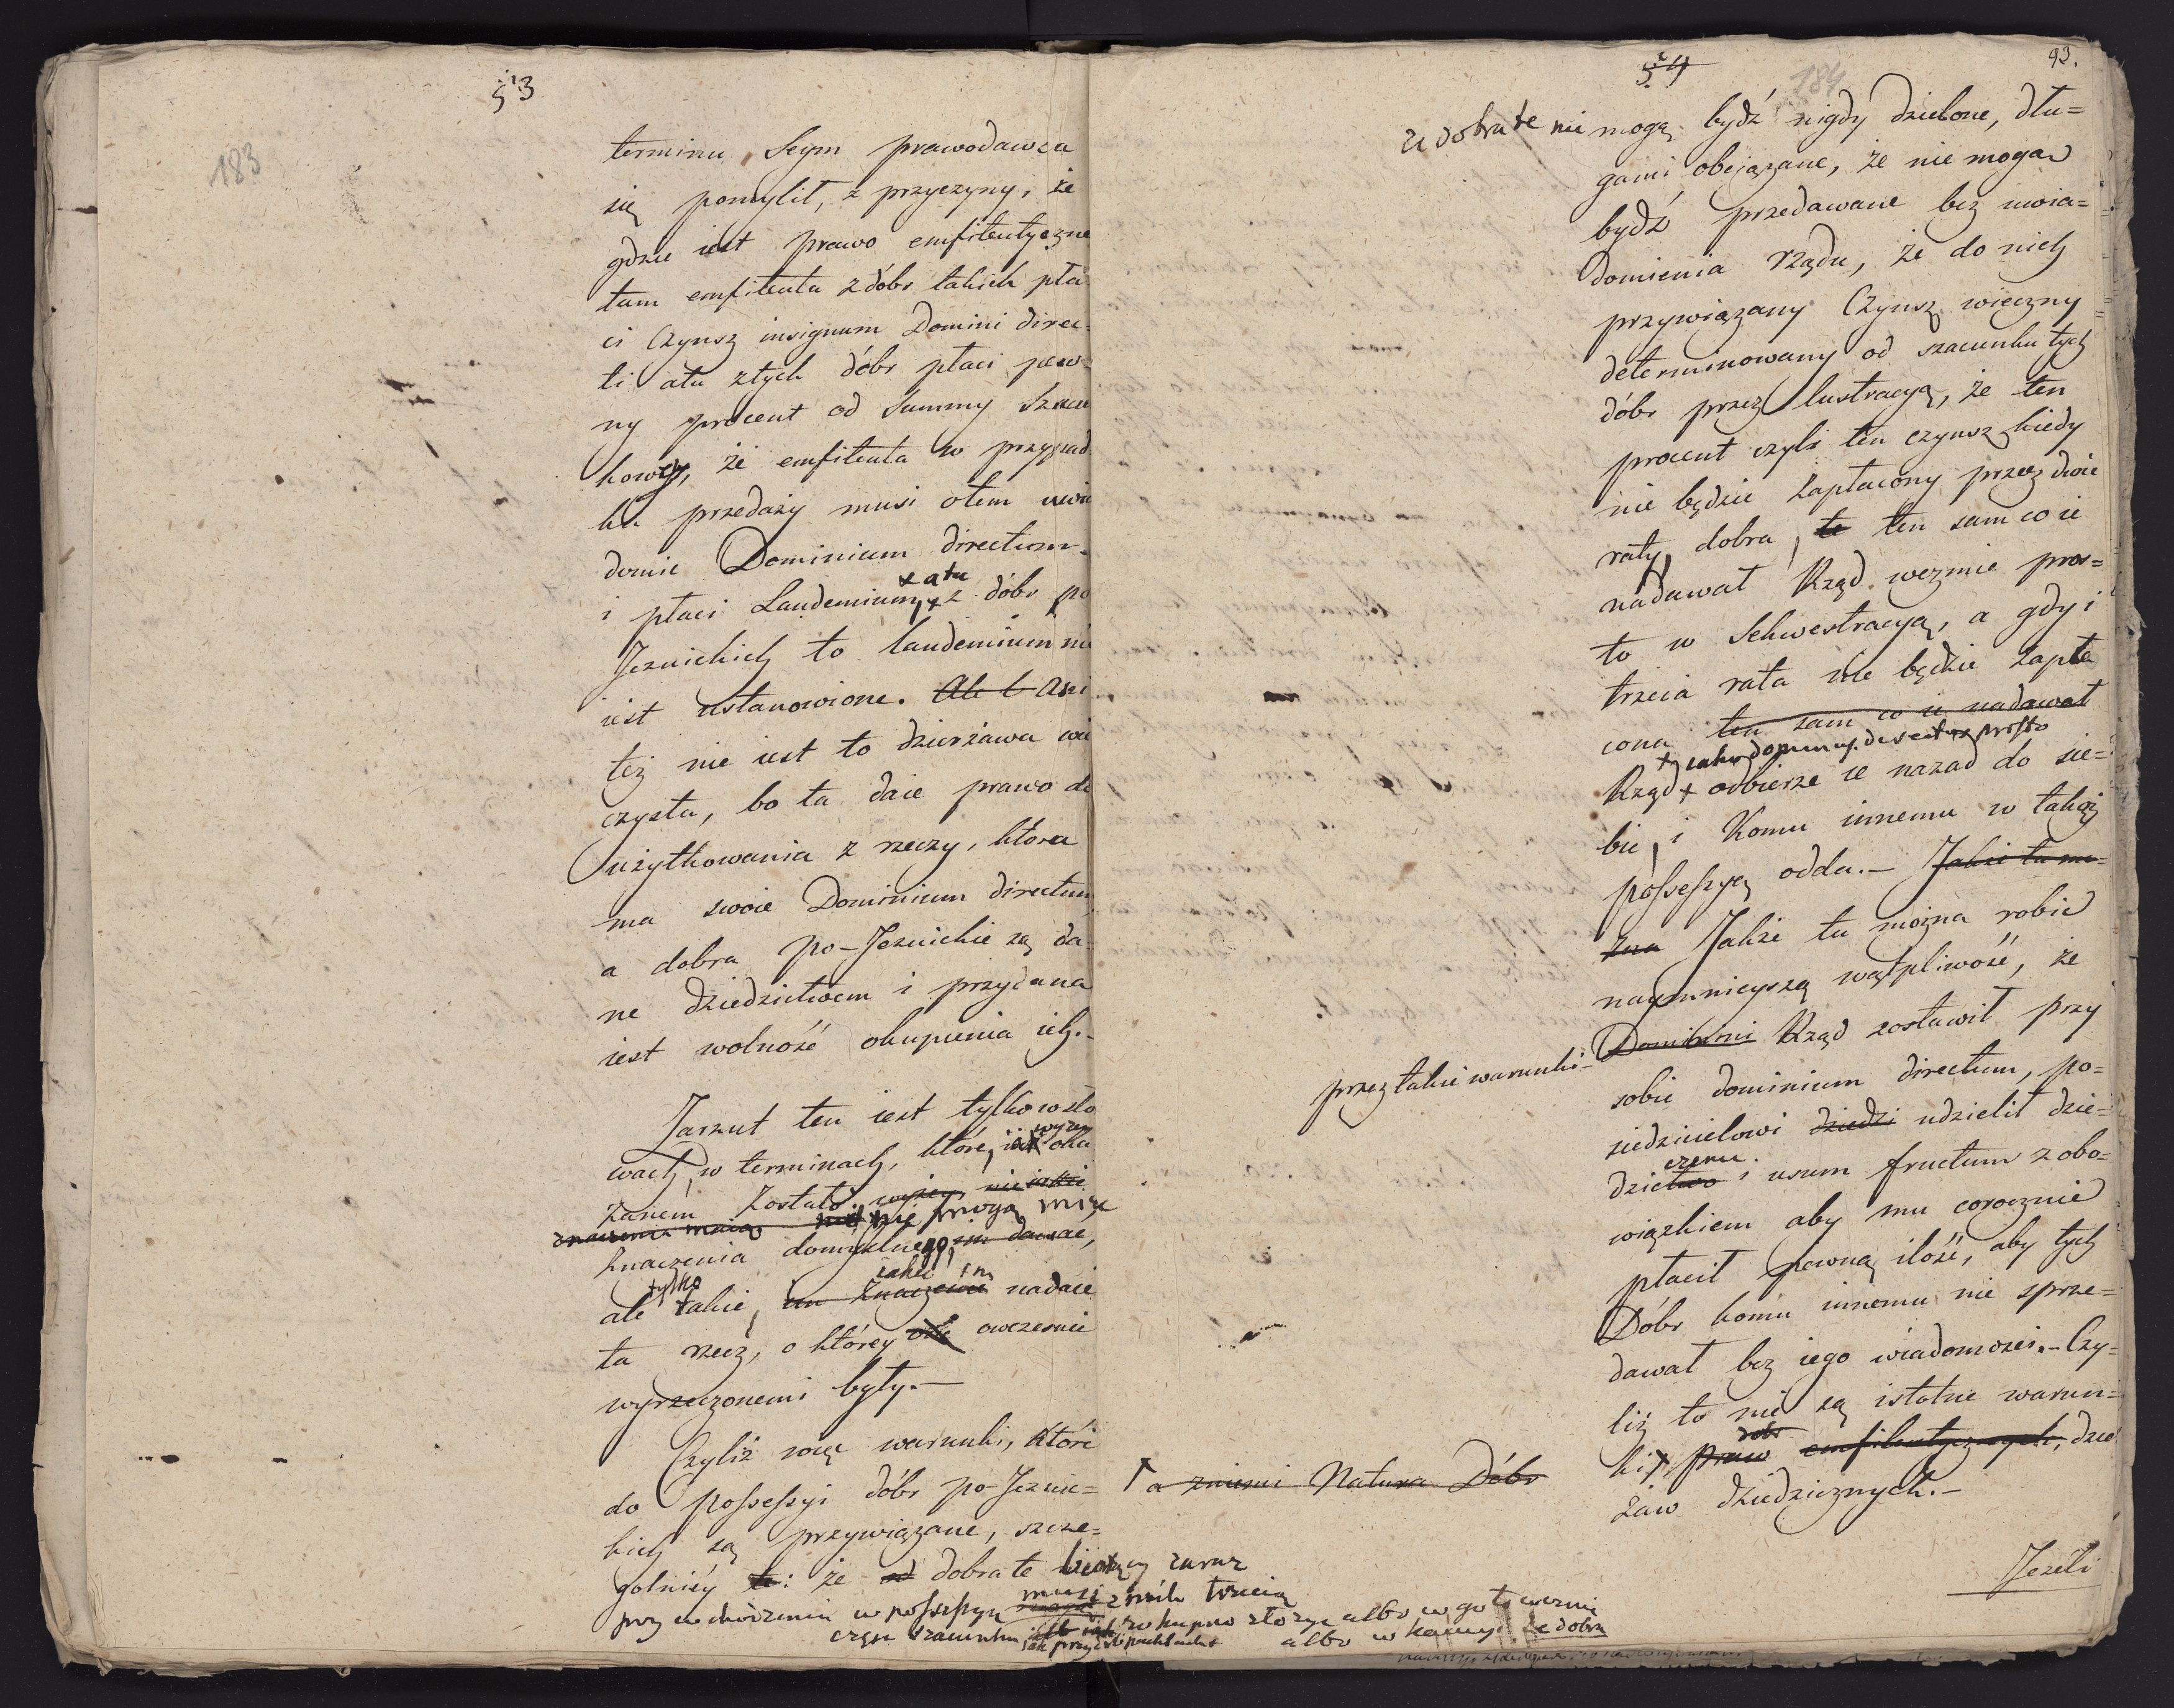 53
183
terminu, Seym prawodawca
się pomylił, z przyczyny, że
gdzie iest prawo emfiteutyczne
tam emfiteuta z dóbr takich pła
ci Czynsz insignum Domini direc=
ti a tu z tych dóbr płaci pew=
ny procent od Summy Szacun
kowey, że emfiteuta w przypad
ku przedaży musi otem uwia
domić Dominium directum
i płaci Laudemium, + z dóbr po
+ a tu
Jezuickich to laudemium nie
iest ustanowione. Ale t Ani
też nie iest to dzierżawa wie
czysta, bo ta daie prawo do
użytkowania z rzeczy, która
ma swoie Dominium directum
a dobra po-Jezuickie są da=
ne dziedzictwem i przydana
iest wolność okupienia ich.-
Zarzut ten iest tylko w sło
wach, w terminach, które, iak wyżey oka
zanem zostało. wyżey, nie
znaczenia nie mogą mieć
znaczenia domyślnego, im dawać,
ale tylko takie, im znaczenie iakie im nadaie
ta rzecz, o którey one owcześnie
wyrzeczonemi były.-
Czyliż więc warunki, które
do possessyi dóbr po-Jezuic=
kich są przywiązane, szcze=
gólniéy te: że od dobra te bierzący zaraz
przy wchodzeniu w possessyą musi trzecią
część szacunku albo w gotowiźnie
albo że dobra
54
184
93.
że dobra te nie mogą bydź nigdy dzielone, dłu=
gami obciążane, że nie mogą
bydź przedawane bez uwia=
domienia rządu, że do nich
przywiązany Czynsz wieczny
determinowany od szacunku tych
dóbr przez lustracyą, że ten
procent czyli ten czynsz kiedy
nie będzie zapłacony przez dwie
raty, dobra, te ten sam co ie
nadawał Rząd weźmie pros=
to w Sekwestracyą, a gdy i
trzecia rata nie będzie zapła
cona ten sam co ie nadawał
+ jako dominus directus prosto
Rząd + odbierze ie nazad do sie=
bie, i Komu innemu w takąż
possessyą odda.- Jakże tu mo=
żna Jakże tu można robić
naymnieyszą wątpliwość, że
przez takie warunki- Dominium Rząd zostawił przy
sobie dominium directum, po=
siedzicielowi dziedzi udzielił dzie=
dzictwo i usum fructum z obo=
wiązkiem aby mu corocznie
płacił pewną ilość, aby tych
Dóbr komu innemu nie sprze=
dawał bez iego wiadomości.- Czy=
liż to nie są istotne warun=
ki + praw dóbr emfiteutycznych, dzier
+ a zniemi Natura Dóbr
żaw dziedzicznych.-
Jeżeli